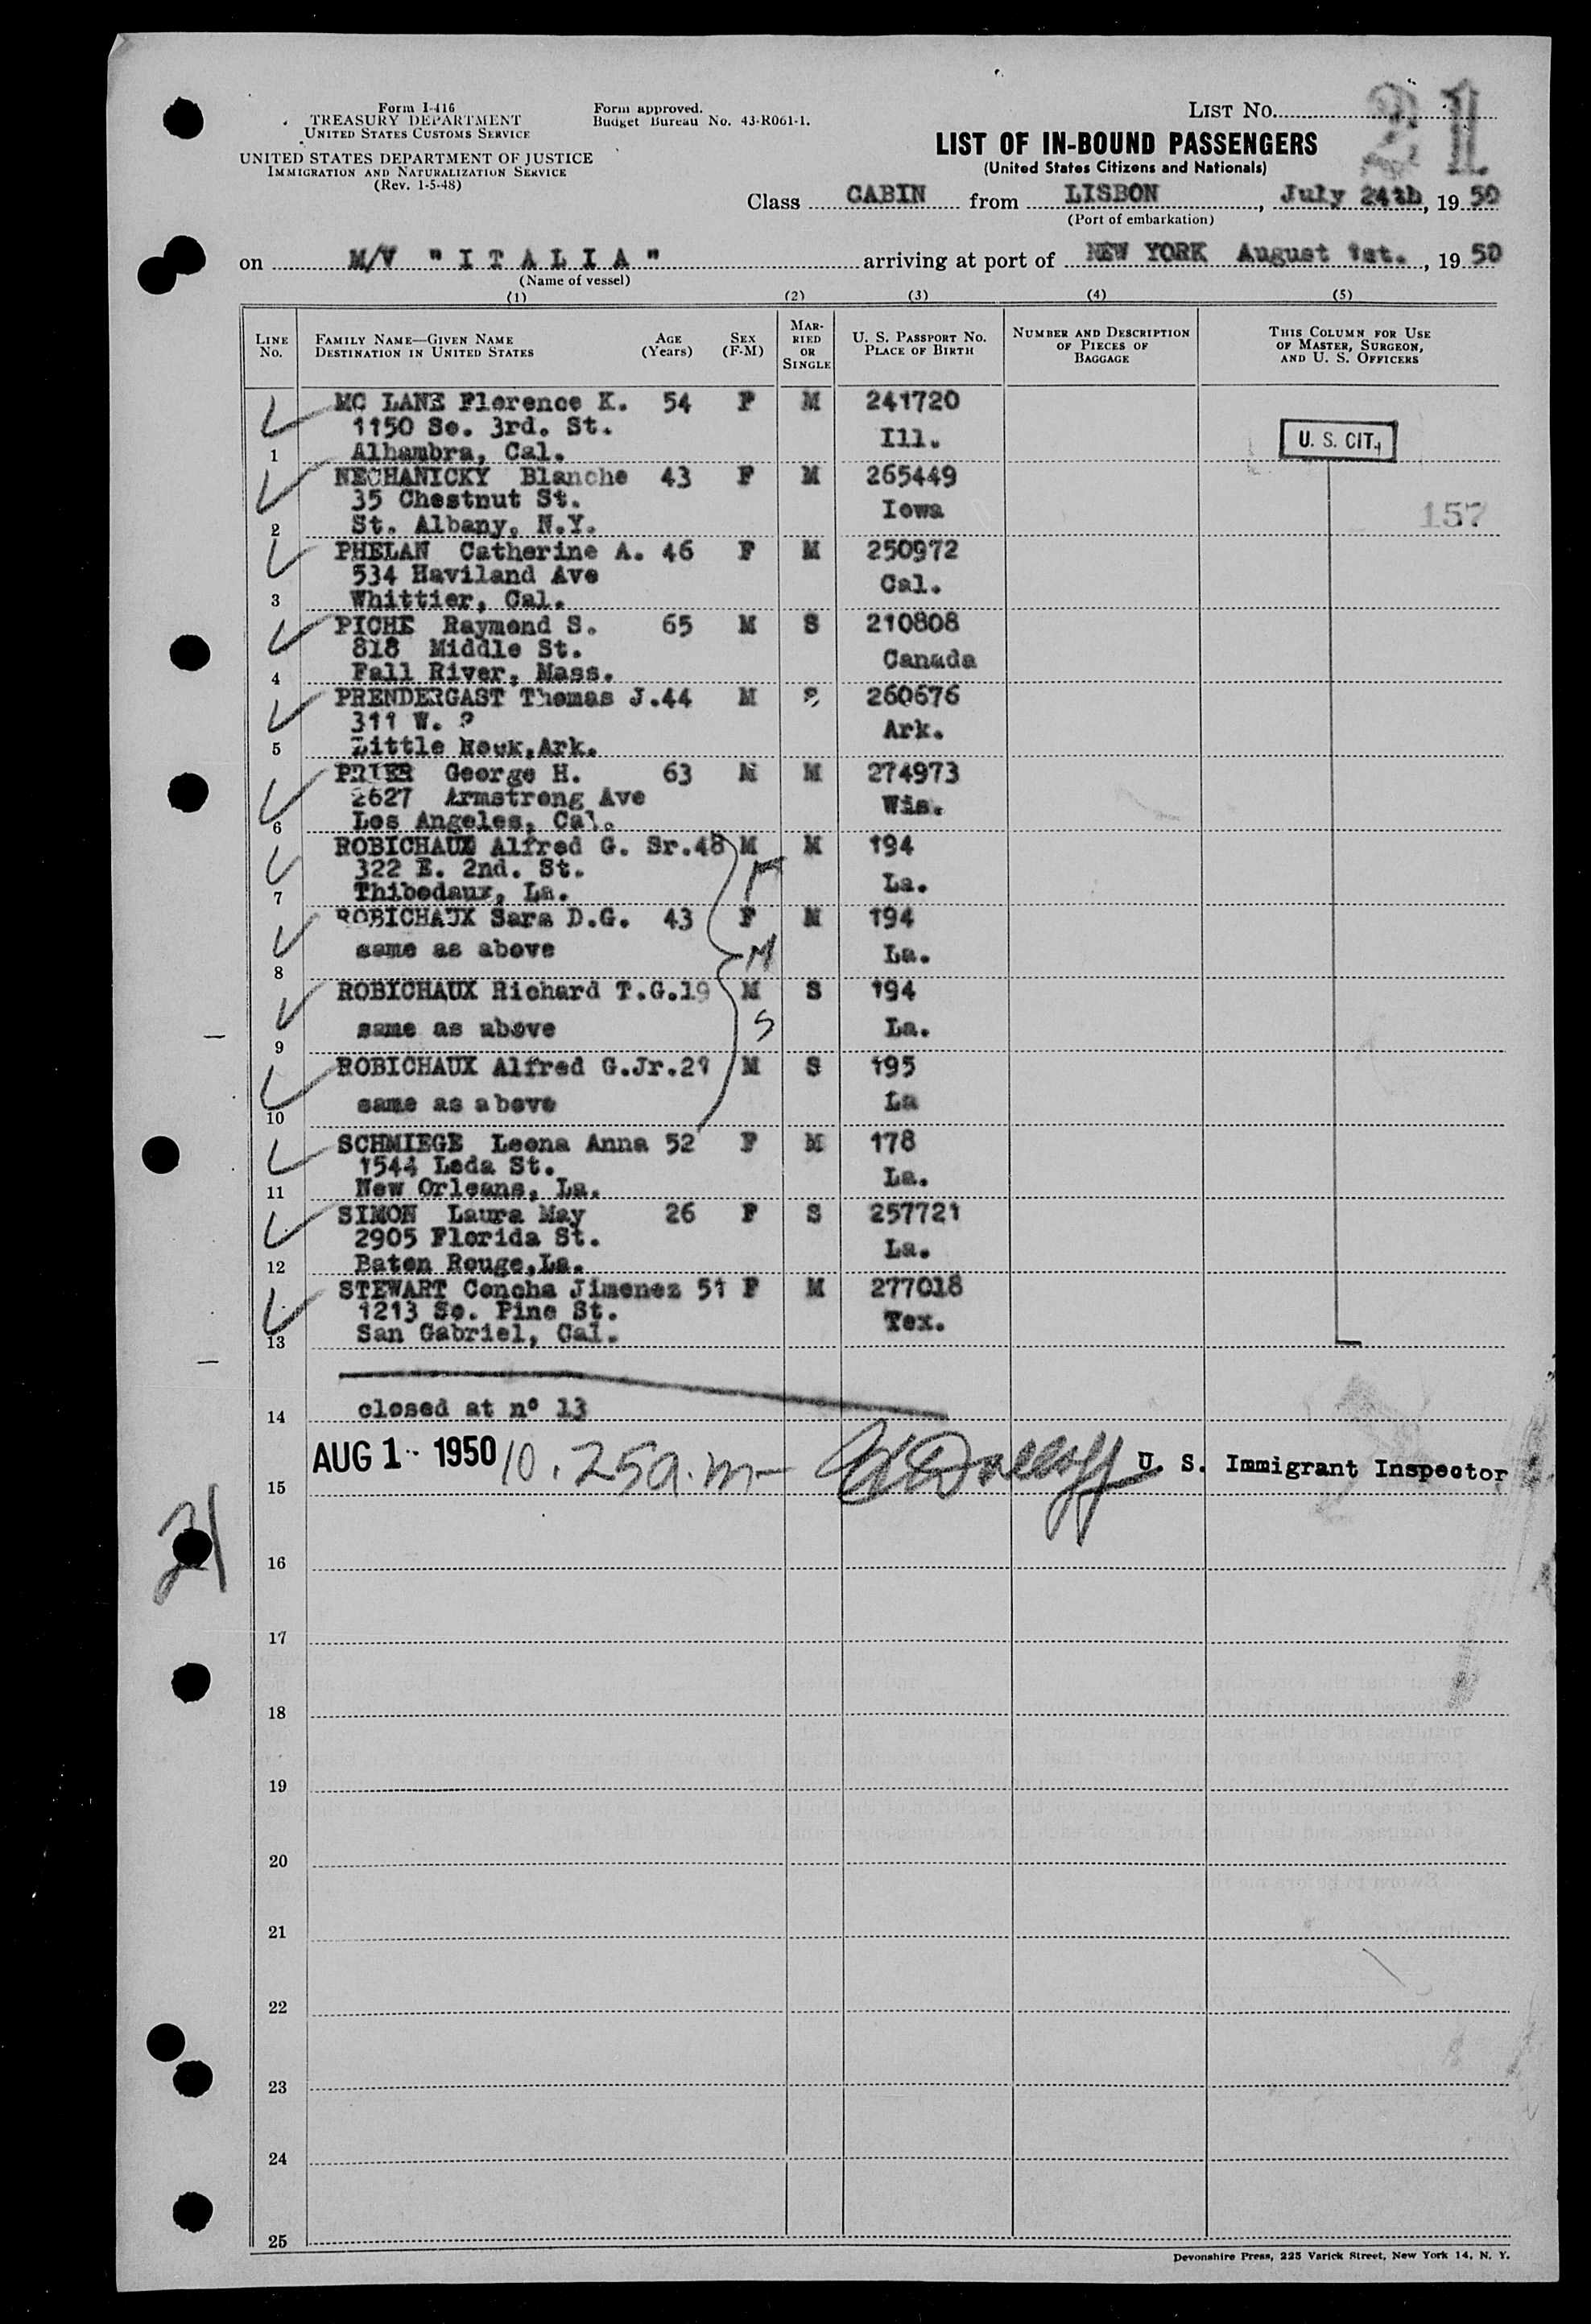 Form I-416
TREASURY DEPARTMENT
UNITED STATES CUSTOMS SERVICE
UNITED STATES DEPARTMENT OF JUSTICE
IMMIGRATION AND NATURALIZATION SERVICE
(Rev. 1-5-48)
Form approved.
Budget Bureau No. 43-R061-1.
LIST NO. 21
LIST OF IN-BOUND PASSENGERS
(United States Citizens and Nationals)
Class CABIN from LISBON, July 24th, 19 50
(Port of embarkation)
on M/V "I T A L I A" arriving at port of NEW YORK August 1st., 19 50
(Name of vessel)
(1) (2) (3) (4) (5)
LINE NO.
FAMILY NAME—GIVEN NAME
DESTINATION IN UNITED STATES
AGE (Years)
SEX (F-M)
MARRIED OR SINGLE
U. S. PASSPORT NO.
PLACE OF BIRTH
NUMBER AND DESCRIPTION OF PIECES OF BAGGAGE
THIS COLUMN FOR USE OF MASTER, SURGEON, AND U. S. OFFICERS
MC LANE Florence K. 54 F M 241720
1150 So. 3rd. St. Ill. U. S. CIT.
1 Alhambra, Cal.
NECHANICKY Blanche 43 F M 265449
35 Chestnut St. Iowa 157
2 St. Albany, N.Y.
PHELAN Catherine A. 46 F M 250972
534 Haviland Ave Cal.
3 Whittier, Cal.
PICHE Raymond S. 65 M S 210808
818 Middle St. Canada
4 Fall River, Mass.
PRENDERGAST Thomas J. 44 M S 260676
311 W. 2 Ark.
5 Little Rock, Ark.
George H. 63 M M 274973
2627 Armstrong Ave Wis.
6 Los Angeles, Cal.
ROBICHAUX Alfred G. Sr. 48 M M 194
322 E. 2nd. St. La.
7 Thibodaux, La.
ROBICHAUX Sara D.G. 43 F M 194
same as above M La.
8
ROBICHAUX Richard T.G. 19 M S 194
same as above S La.
9
ROBICHAUX Alfred G.Jr. 21 M S 195
same as above La
10
SCHMIEGE Leona Anna 52 F M 178
1544 Leda St. La.
11 New Orleans, La.
SIMON Laura May 26 F S 257721
2905 Florida St. La.
12 Baton Rouge, La.
STEWART Concha Jimenez 51 F M 277018
1213 So. Pine St. Tex.
13 San Gabriel, Cal.
14 closed at nº 13
AUG 1 - 1950 10.25a.m- U. S. Immigrant Inspector
15
21
16
17
18
19
20
21
22
23
24
25
Devonshire Press, 225 Varick Street, New York 14, N. Y.